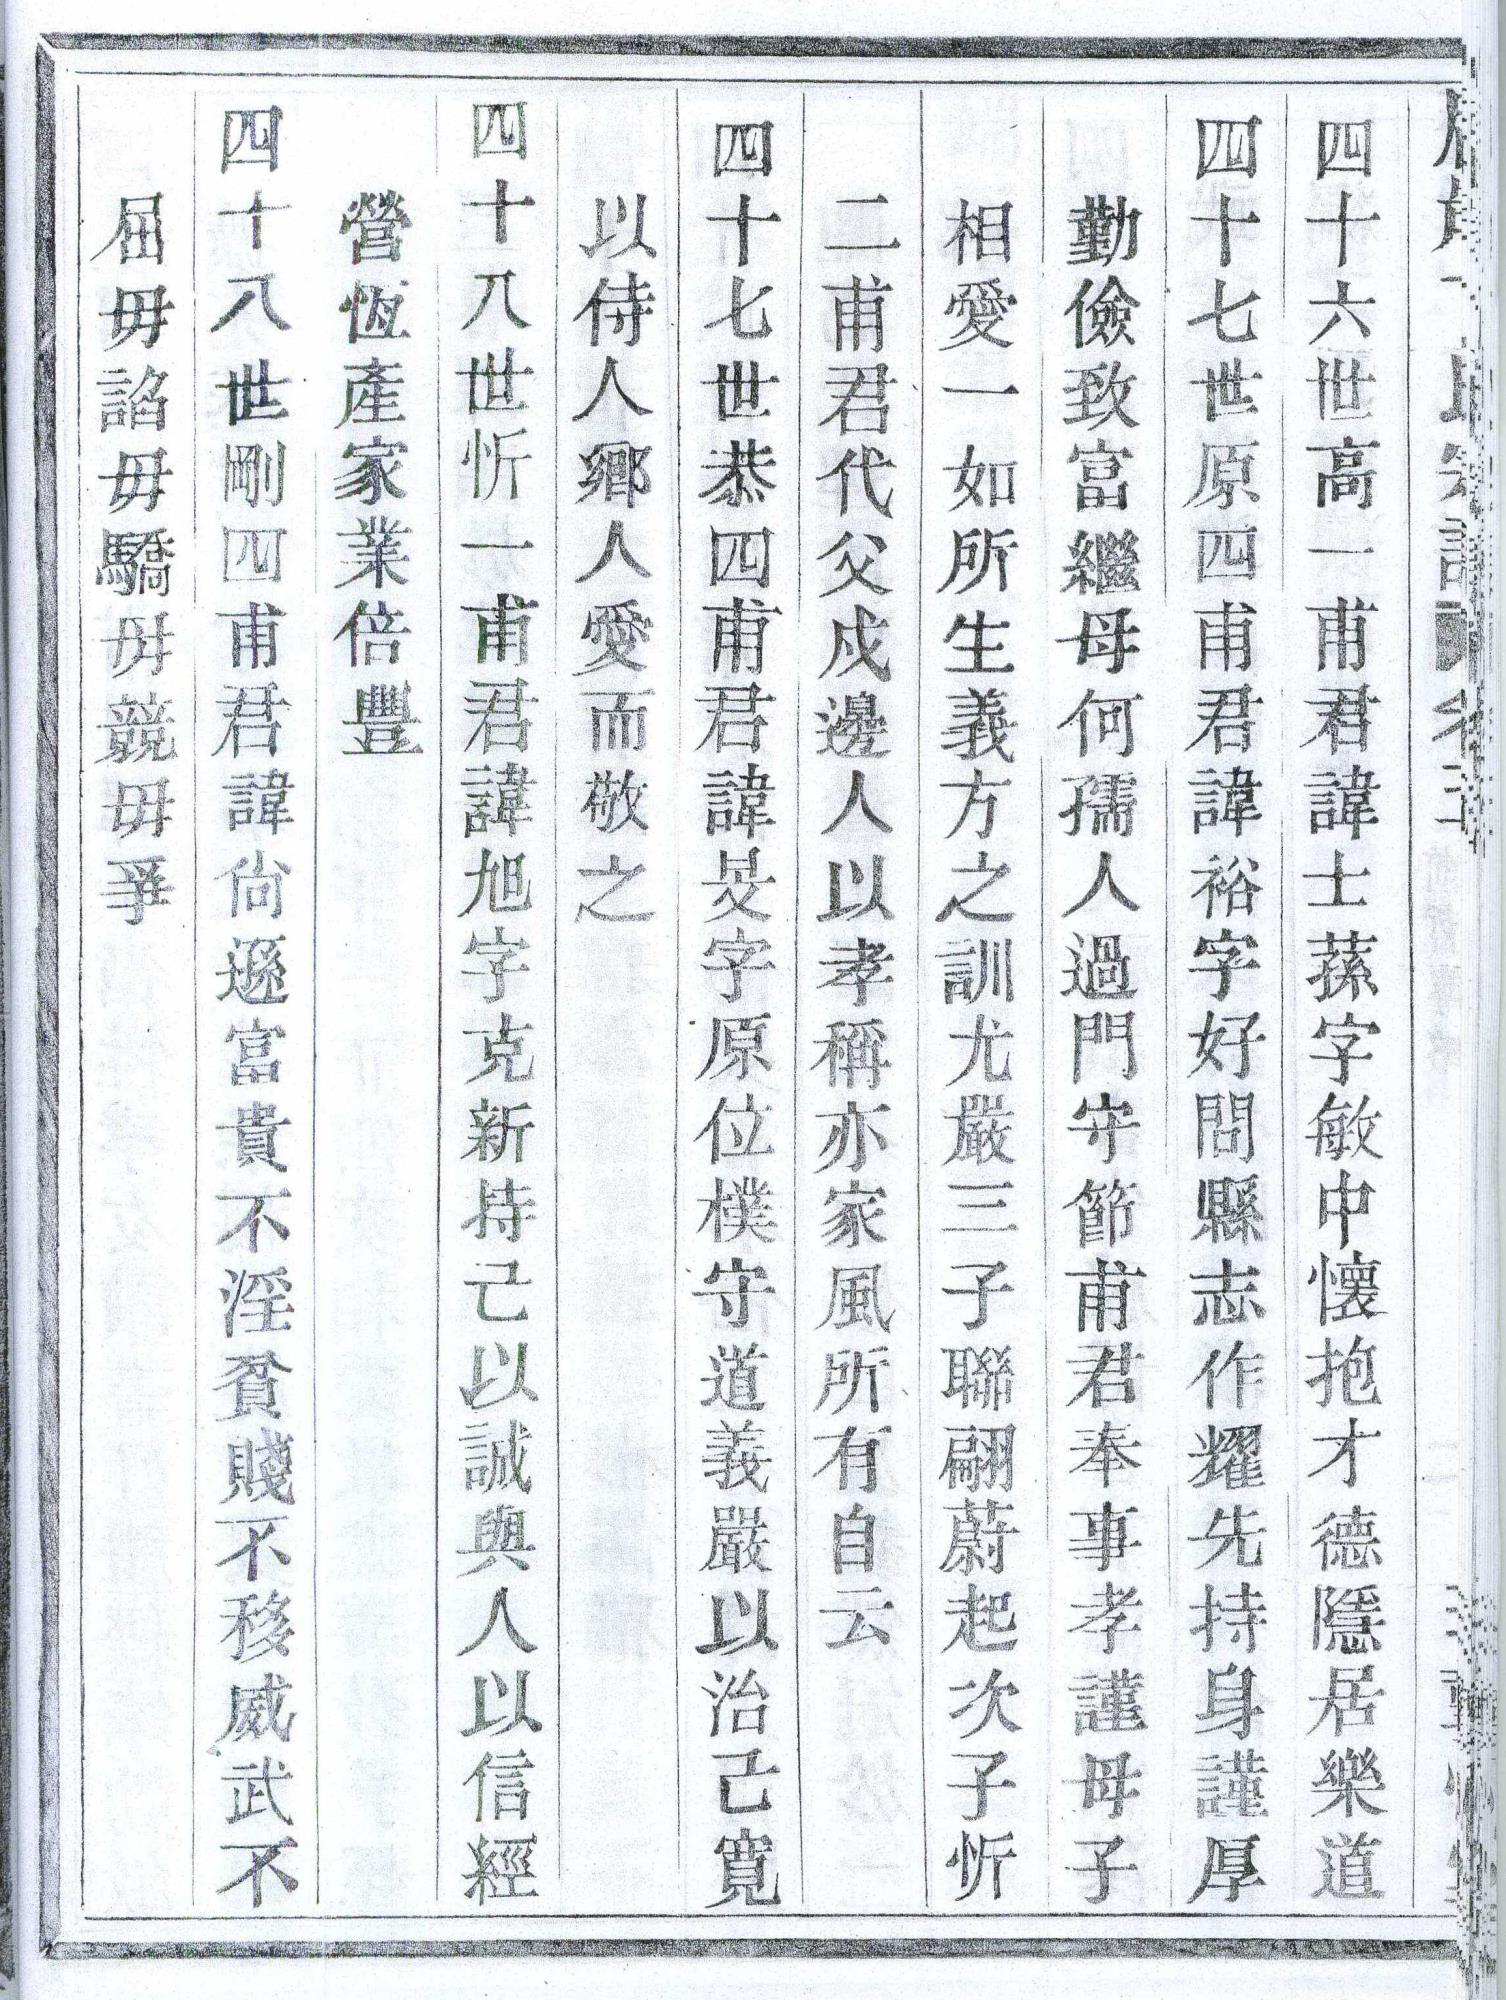 四十六世高一甫君諱士蓀字敏中懷抱才德隱居樂道
四十七世原四甫君諱裕字好問縣志作耀先持身謹厚
勤儉致富繼母何孺人過門守節甫君奉事孝謹母子
相愛一如所生義方之訓尤嚴三子聯翩蔚起次子忻
二甫君代父戍邊人以孝稱亦家風所有自云
四十七世恭四甫君諱旻字原位樸守道義嚴以治己寬
以侍人鄉人愛而敬之
四十八世忻一甫君諱旭字克新持己以誠與人以信經
營恆產家業倍豐
四十八世剛四甫君諱尙遜富貴不淫貧賤不移威武不
屈毋諂毋驕毋競毋爭